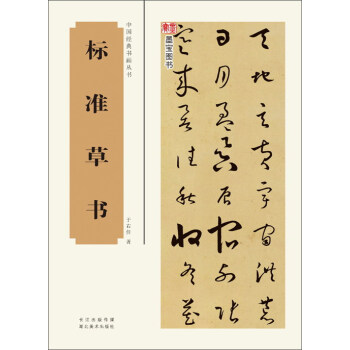 中国经典书画丛书
标准草书
于右任 著
墨宝图书
天地玄黄宇宙洪荒
日月盈昃辰宿列张
寒来暑往秋收冬藏
长江出版传媒
湖北美术出版社